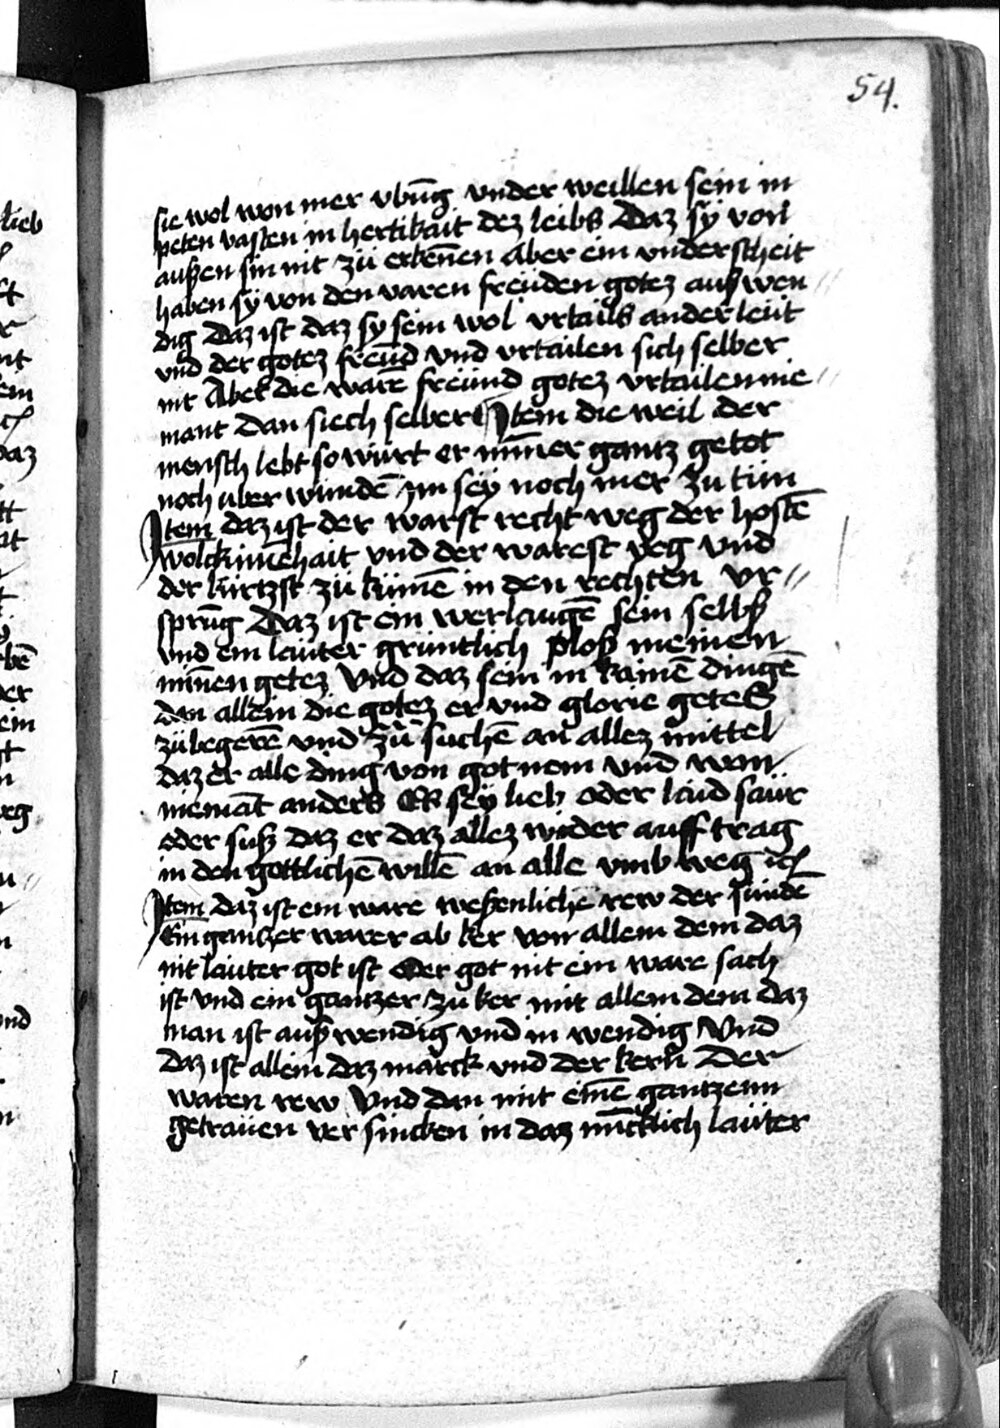 54.
sie wol won mer vbūg vnder weillen sein in
peten vasten in hertikait dez leibs Daz sy von
außen sin nit zü erkēnen Aber ein vnderscheit
haben sy von den waren freüden gotez auß wen
dig Daz ist daz sy sein wol vrtails ander leüt
vnd der gotez freūd vnd vrtailen sich selber
nit Aber die warē freünd gotez vrtailen nie
mant dan siech selber Item die weil der
mensch lebt so würt er nim̄er gantz getot
noch uber wundē im sey noch mer zu tün
Item daz ist der warst recht weg der hostē
wolckum̄ehait vnd der warest veg vnd
der kürtzst zü kümē in den rechten vr
sprūg Daz ist ein verlaugē sein selbß
vnd ein lauter grüntlich ploß meinen
min̄en getez Vnd daz sein in kainē dingē
dan allein die gotez er vnd glorie getes
zü begerē vnd zü suchē an allez mittel
daz er alle ding von got nem vnd won
niemāt anders Es sey lieb oder laid saür
oder suß daz er daz allez wider auff trag
in den gottlichē willē an alle vmb weg
Item daz ist ein ware weßenlichē rew der sündē
Ein gantzer warer ab ker von allem dem daz
nit lauter got ist oder got nit ein ware sach
ist vnd ein gantzer zu ker mit allem dem daz
man ist auß wendig vnd in wendig Vnd
daz ist allein daz marck vnd der kern Der
waren rew Vnd dan mit einē gantzenn
getrauen ver sincken in daz lauter